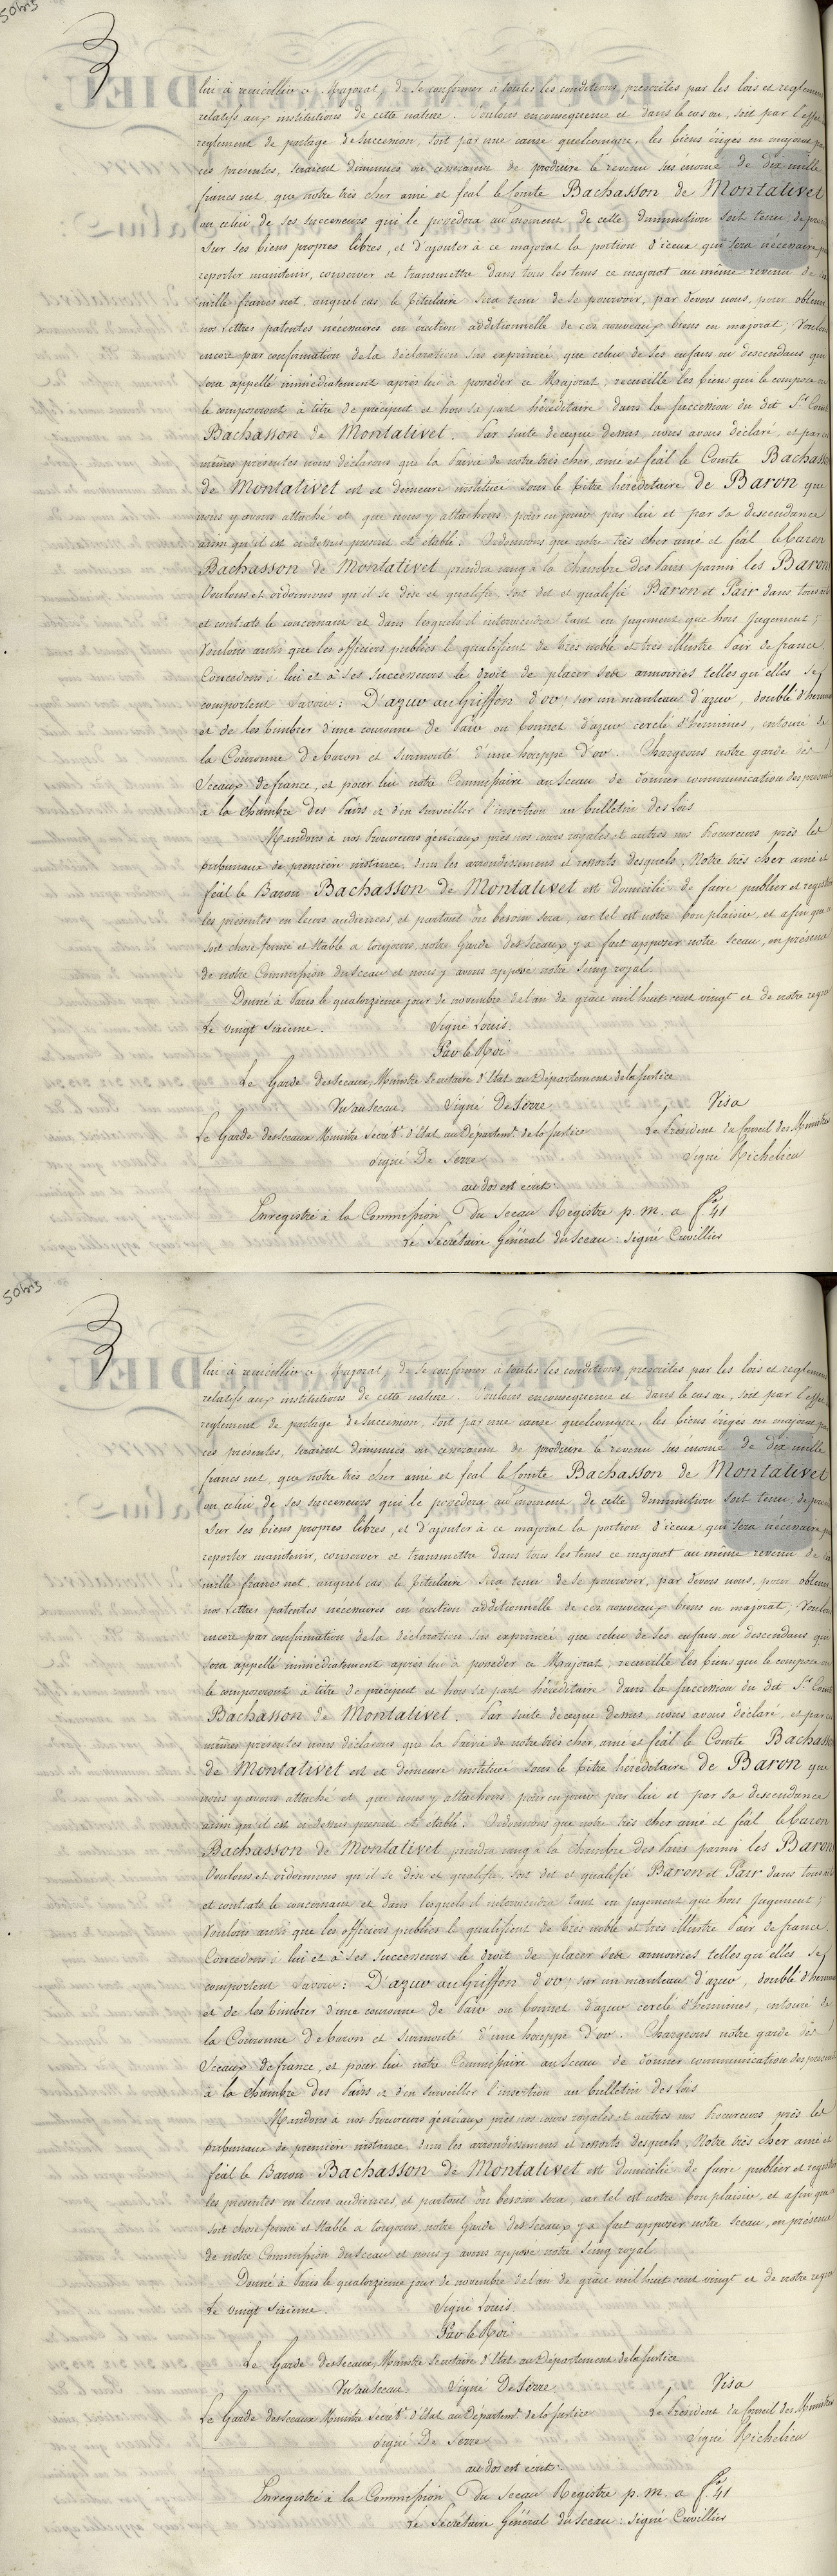 50bis
3
lui à recueillir ce Majorat, de se conformer à toutes les conditions prescrites par les lois et reglemens
relatifs aux institutions de cette nature. Voulons enconsequence et dans le cas ou, soit par l'effet
reglement de partage de Succession, soit par une cause quelconque, les biens érigés en majorat par
ces presentes, seraient diminués ou cesseraient de produire le revenu sus énoncé de dix mille
francs net, que notre très cher amé et féal le Comte Bachasson de Montalivet
ou celui de ses successeurs qui le possedera au moment de cette diminution soit tenu, de
sur ses biens propres libres, et d'ajouter à ce majorat la portion d'iceux qui sera nécessaire
reporter maintenir, conserver et transmettre dans tous les tems ce majorat au même revenu de
mille francs net, auquel cas le titulaire sera tenu de se pourvoir, par devers nous, pour obtenir
nos Lettres patentes nécessaires en érection additionnelle de ces nouveaux biens en majorat; Voulons
encore par confirmation de la déclaration sus exprimée que celui de ses enfans ou descendans qui
sera appellé immédiatement après lui à posséder ce Majorat, recueille les biens qui le composent ou
le composeront à titre de préciput et hors sa part héréditaire dans la succession du dit Sr Comte
Bachasson de Montalivet. Par suite de ceque dessus, nous avons déclaré, et par ces
mêmes presentes nous déclarons que la Pairie de notre très cher, amé et féal le Comte Bachasson
de Montalivet est et demeure instituée sous le titre héréditaire de Baron que
nous y avons attaché et que nous y attachons pour en jouir par lui et par sa descendance
ainsi qu'il est ci dessus prescrit et établi. Ordonnons que notre très cher amé et féal le Baron
Bachasson de Montalivet prendra rang à la Chambre des Pairs parmi les Barons
Voulons et ordonnons qu'il se dise et qualifie, soit dit et qualifié Baron et Pair dans tous
et contrats le concernant et dans lesquels il interviendra tant en jugement que hors Jugement;
Voulons aussi que les officiers publics le qualifient de très noble et très illustre Pair de france.
Concedons à lui et à Ses Successeurs le droit de placer ses armoiries telles qu'elles se
comportent Savoir: D'azur au Griffon d'or, sur un manteau d'azur, doublé d'hermine
et de les timbrer d'une couronne de Pair ou bonnet d'azur cerclé d'hermines, entouré de
la Couronne de baron et surmonté d'une houppe d'or. Chargeons notre garde des
Sceaux de france, et pour lui notre Commissaire au Sceau de donner communication des presentes
à la chambre des Pairs et d'en surveiller l'insertion au bulletin des Lois
Mandons à nos Procureurs généraux près nos cours royales et autres nos Procureurs près les
tribunaux de première instance, dans les arrondissemens et ressorts desquels, Notre très cher amé et
féal le Baron Bachasson de Montalivet est domicilié de faire publier et registrer
les présentes en leurs audiences, et partout où besoin sera; car tel est notre bon plaisir, et afin que ce
soit chose ferme et stable a toujours, notre Garde des Sceaux y a fait apposer notre sceau, en présence
de notre Commission du Sceau et nous y avons apposé notre Seing royal
Donné à Paris le quatorzième jour de novembre de l'an de grâce mil huit cent vingt et de notre regne
Le vingt Sixième. Signé Louis.
Par le Roi
Le Garde des Sceaux, Ministre Secrétaire d'Etat au Département de la Justice
Vu au Sceau. Signé De Serre Visa
Le Garde des Sceaux Ministre Secret. d'Etat au Départemt. de la Justice Le President du Conseil des Ministres
Signé De Serre Signé Richelieu
au dos est écrit:
Enregistré à la Commission Du Sceau Registre p. m. a fo 41
Le Secrétaire Général du Sceau: signé Cuvillier
50bis
3
lui à recueillir ce Majorat, de se conformer à toutes les conditions prescrites par les lois et reglemens
relatifs aux institutions de cette nature. Voulons enconsequence et dans le cas ou, soit par l'effet
reglement de partage de Succession, soit par une cause quelconque, les biens érigés en majorat par
ces presentes, seraient diminués ou cesseraient de produire le revenu sus énoncé de dix mille
francs net, que notre très cher amé et féal le Comte Bachasson de Montalivet
ou celui de ses successeurs qui le possedera au moment de cette diminution soit tenu, de
sur ses biens propres libres, et d'ajouter à ce majorat la portion d'iceux qui sera nécessaire
reporter maintenir, conserver et transmettre dans tous les tems ce majorat au même revenu de
mille francs net, auquel cas le titulaire sera tenu de se pourvoir, par devers nous, pour obtenir
nos Lettres patentes nécessaires en érection additionnelle de ces nouveaux biens en majorat; Voulons
encore par confirmation de la déclaration sus exprimée que celui de ses enfans ou descendans qui
sera appellé immédiatement après lui à posséder ce Majorat, recueille les biens qui le composent ou
le composeront à titre de préciput et hors sa part héréditaire dans la succession du dit Sr Comte
Bachasson de Montalivet. Par suite de ceque dessus, nous avons déclaré, et par ces
mêmes presentes nous déclarons que la Pairie de notre très cher, amé et féal le Comte Bachasson
de Montalivet est et demeure instituée sous le titre héréditaire de Baron que
nous y avons attaché et que nous y attachons pour en jouir par lui et par sa descendance
ainsi qu'il est ci dessus prescrit et établi. Ordonnons que notre très cher amé et féal le Baron
Bachasson de Montalivet prendra rang à la Chambre des Pairs parmi les Barons
Voulons et ordonnons qu'il se dise et qualifie, soit dit et qualifié Baron et Pair dans tous
et contrats le concernant et dans lesquels il interviendra tant en jugement que hors Jugement;
Voulons aussi que les officiers publics le qualifient de très noble et très illustre Pair de france.
Concedons à lui et à Ses Successeurs le droit de placer ses armoiries telles qu'elles se
comportent Savoir: D'azur au Griffon d'or, sur un manteau d'azur, doublé d'hermine
et de les timbrer d'une couronne de Pair ou bonnet d'azur cerclé d'hermines, entouré de
la Couronne de baron et surmonté d'une houppe d'or. Chargeons notre garde des
Sceaux de france, et pour lui notre Commissaire au Sceau de donner communication des presentes
à la chambre des Pairs et d'en surveiller l'insertion au bulletin des Lois
Mandons à nos Procureurs généraux près nos cours royales et autres nos Procureurs près les
tribunaux de première instance, dans les arrondissemens et ressorts desquels, Notre très cher amé et
féal le Baron Bachasson de Montalivet est domicilié de faire publier et registrer
les présentes en leurs audiences, et partout où besoin sera; car tel est notre bon plaisir, et afin que ce
soit chose ferme et stable a toujours, notre Garde des Sceaux y a fait apposer notre sceau, en présence
de notre Commission du Sceau et nous y avons apposé notre Seing royal
Donné à Paris le quatorzième jour de novembre de l'an de grâce mil huit cent vingt et de notre regne
Le vingt Sixième. Signé Louis.
Par le Roi
Le Garde des Sceaux, Ministre Secrétaire d'Etat au Département de la Justice
Vu au Sceau. Signé De Serre Visa
Le Garde des Sceaux Ministre Secret. d'Etat au Départemt. de la Justice Le President du Conseil des Ministres
Signé De Serre Signé Richelieu
au dos est écrit:
Enregistré à la Commission Du Sceau Registre p. m. a fo 41
Le Secrétaire Général du Sceau: signé Cuvillier